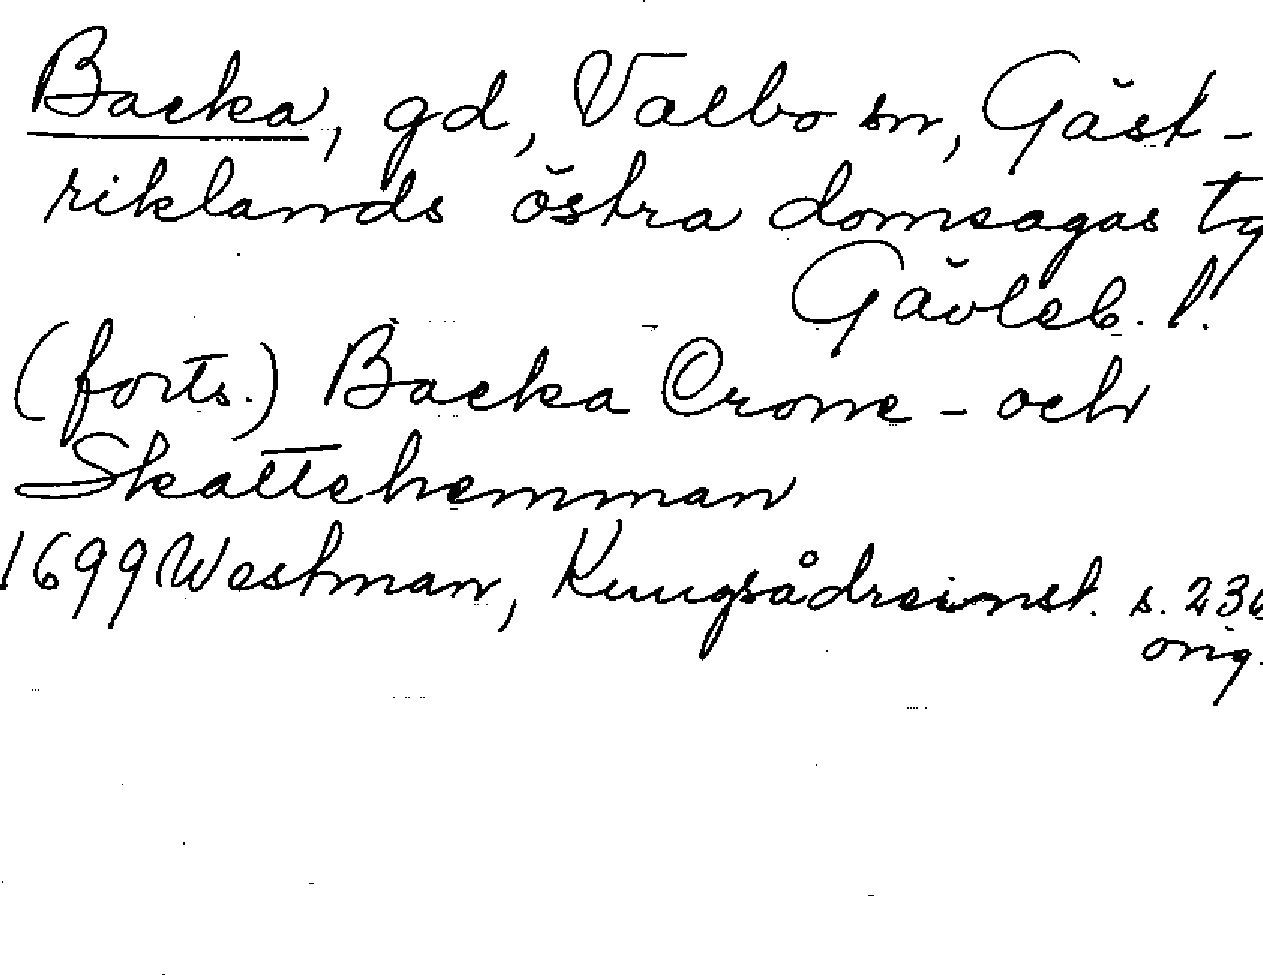 Backa, gd, Valbo sn, Gäst-
riklands östra domsagas tg
Gävleb. l.
(forts.) Backa Crone- och
Skattehemman
1699 Westman, Kungsådreinst. s. 236
orig.